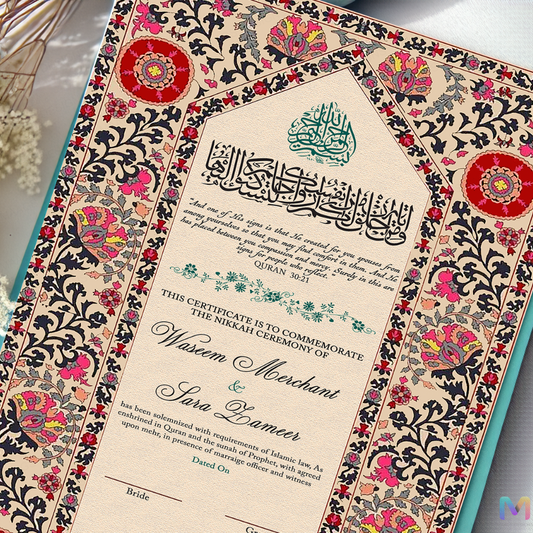 بسم الله الرحمن الرحيم
ومن آياته أن خلق لكم من أنفسكم أزواجا لتسكنوا إليها
"And one of His signs is that He created for you spouses from
among yourselves so that you may find comfort in them. And He
has placed between you compassion and mercy. Surely in this are
signs for people who reflect."
QURAN 30:21
THIS CERTIFICATE IS TO COMMEMORATE
THE NIKKAH CEREMONY OF
Waseem Merchant
&
Sara Zameer
has been solemnized with requirements of Islamic law, As
enshrined in Quran and the sunah of Prophet, with agreed
upon mehr, in presence of marraige officer and witness
Dated On
Bride